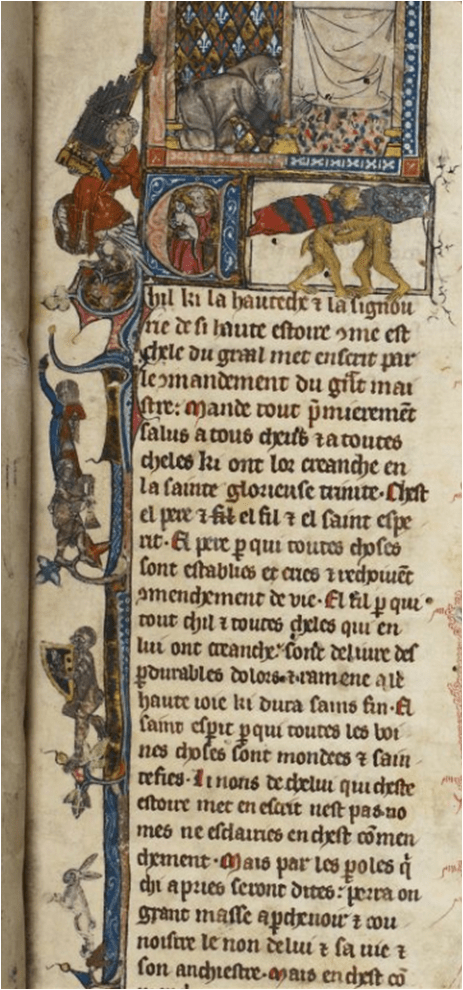 Chil ki la hauteche ⁊ la signou
rie de si haute estoire ꝯme est
chele du graal met enscrit par
le ꝯmandement du gͣt mai
stre: Mande tout p̃mierem̃t
salus a tous cheus ⁊ a toutes
cheles ki ont lor creanche en
la sainte glorieuse trinite. Chest
el pere ⁊ fil el fil ⁊ el saint espe
rit. El pere ꝑ qui toutes choses
sont establies et crees ⁊ rechoiuẽt
ꝯmenchement de vie. El fil ꝑ qui
tout chil ⁊ toutes cheles qui en
lui ont creanche sont deliure des
ꝑdurables dolors ⁊ ramene a le
haute ioie ki dura sains fin. El
saint esperit ꝑ qui toutes les boi
nes choses sont mondees ⁊ sain
tefies. Li nons de chelui qui cheste
estoire met en escrit nest pas no
mes ne esclairies en chest cõmen
chement. Mais par les ꝑoles q̃
chi apries seront dites: porra on
grant masse aꝑcheuoir ⁊ cou
noistre le non de lui ⁊ sa uie ⁊
son anchiestre. Mais en chest cõ